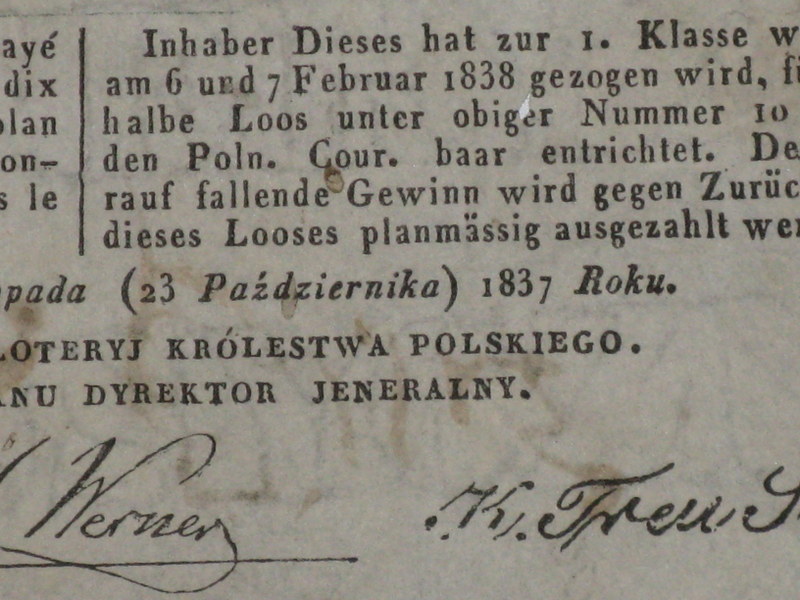 ayé
dix
plan
on-
s le
Inhaber Dieses hat zur 1. Klasse w
am 6 und 7 Februar 1838 gezogen wird, fü
halbe Loos unter obiger Nummer 10
den Poln. Cour. baar entrichtet. De
rauf fallende Gewinn wird gegen Zurüc
dieses Looses planmässig ausgezahlt wer
pada (23 Października) 1837 Roku.
LOTERYJ KRÓLESTWA POLSKIEGO.
ANU DYREKTOR JENERALNY.
Werner
K. Treu